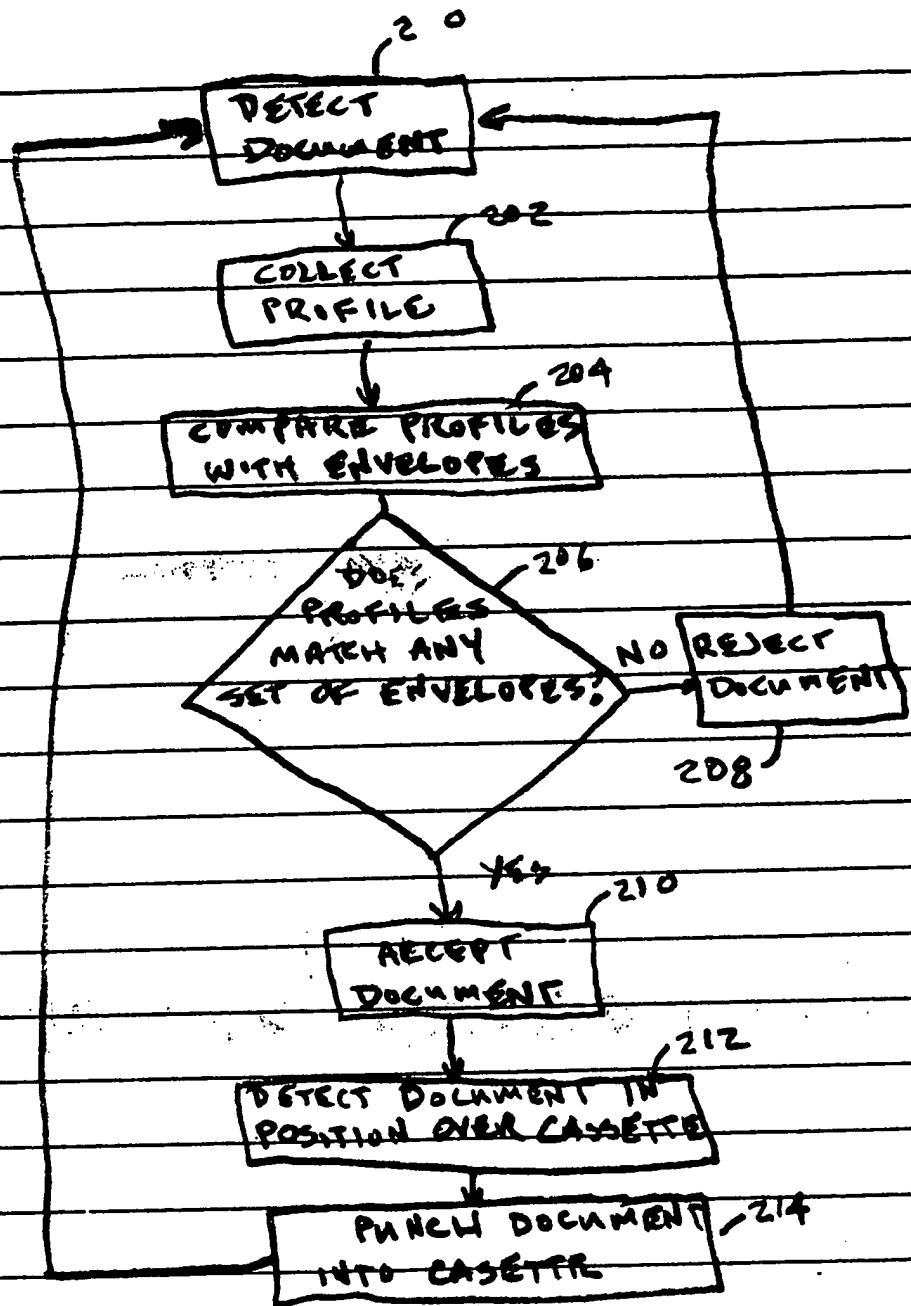 2 0
DETECT
DOCUMENT
202
COLLECT
PROFILE
204
COMPARE PROFILES
WITH ENVELOPES
206
PROFILES
MATCH ANY
SET OF ENVELOPES?
NO
REJECT
DOCUMENT
208
YES
210
ACCEPT
DOCUMENT
212
DETECT DOCUMENT IN
POSITION OVER CASSETTE
PUNCH DOCUMENT
INTO CASETTE
214